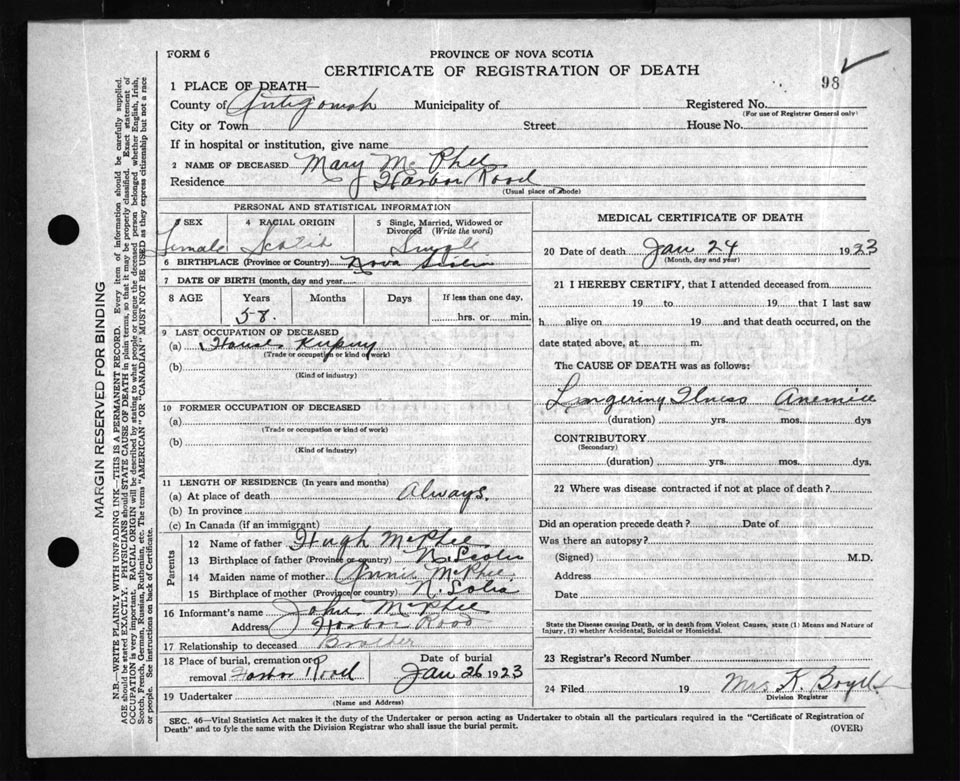 FORM 6
PROVINCE OF NOVA SCOTIA
CERTIFICATE OF REGISTRATION OF DEATH
98
1 PLACE OF DEATH—
County of Antigonish Municipality of Registered No.
(For use of Registrar General only)
City or Town Street House No.
If in hospital or institution, give name
2 NAME OF DECEASED Mary McPhee
Residence Harbor Road
(Usual place of abode)
PERSONAL AND STATISTICAL INFORMATION
3 SEX 4 RACIAL ORIGIN 5 Single, Married, Widowed or Divorced (Write the word)
Female Scotch Single
6 BIRTHPLACE (Province or Country) Nova Scotia
7 DATE OF BIRTH (month, day and year)
8 AGE Years Months Days If less than one day,
58. hrs. or min.
9 LAST OCCUPATION OF DECEASED
(a) House Keeping
(Trade or occupation or kind of work)
(b)
(Kind of industry)
10 FORMER OCCUPATION OF DECEASED
(a)
(Trade or occupation or kind of work)
(b)
(Kind of industry)
11 LENGTH OF RESIDENCE (In years and months)
(a) At place of death Always.
(b) In province
(c) In Canada (if an immigrant)
Parents
12 Name of father Hugh McPhee
13 Birthplace of father (Province or country) N. Scotia
14 Maiden name of mother Annie McPhee
15 Birthplace of mother (Province or country) N. Sotia
16 Informant's name John McPhee
Address Harbor Road
17 Relationship to deceased Brother
18 Place of burial, cremation or removal Harbor Road Date of burial Jan 26 1923
19 Undertaker
(Name and Address)
MEDICAL CERTIFICATE OF DEATH
20 Date of death Jan 24 1923
(Month, day and year)
21 I HEREBY CERTIFY, that I attended deceased from
19 to 19 that I last saw
h alive on 19 and that death occurred, on the
date stated above, at m.
The CAUSE OF DEATH was as follows:
Lingering Ilness
(duration) yrs. mos. dys
CONTRIBUTORY
(Secondary)
(duration) yrs. mos. dys.
22 Where was disease contracted if not at place of death?
Did an operation precede death? Date of
Was there an autopsy?
(Signed) M.D.
Address
Date
State the Disease causing Death, or in death from Violent Causes, state (1) Means and Nature of
Injury, (2) whether Accidental, Suicidal or Homicidal.
23 Registrar's Record Number
24 Filed 19 Mrs K. Boyd
Division Registrar
SEC. 46—Vital Statistics Act makes it the duty of the Undertaker or person acting as Undertaker to obtain all the particulars required in the "Certificate of Registration of
Death" and to fyle the same with the Division Registrar who shall issue the burial permit.
(OVER)
MARGIN RESERVED FOR BINDING
N.B.—WRITE PLAINLY WITH UNFADING INK—THIS IS A PERMANENT RECORD. Every item of information should be carefully supplied.
AGE should be stated EXACTLY. PHYSICIANS should STATE CAUSE OF DEATH in plain terms, so that it may be properly classified. Exact statement of
OCCUPATION is very important. RACIAL ORIGIN will be described by stating to what people or tongue the deceased person belonged whether English, Irish,
Scotch, French, German, Russian, Ruthenian, etc. The terms "AMERICAN" OR "CANADIAN" MUST NOT BE USED as they express citizenship but not a race
or people. See instructions on back of Certificate.